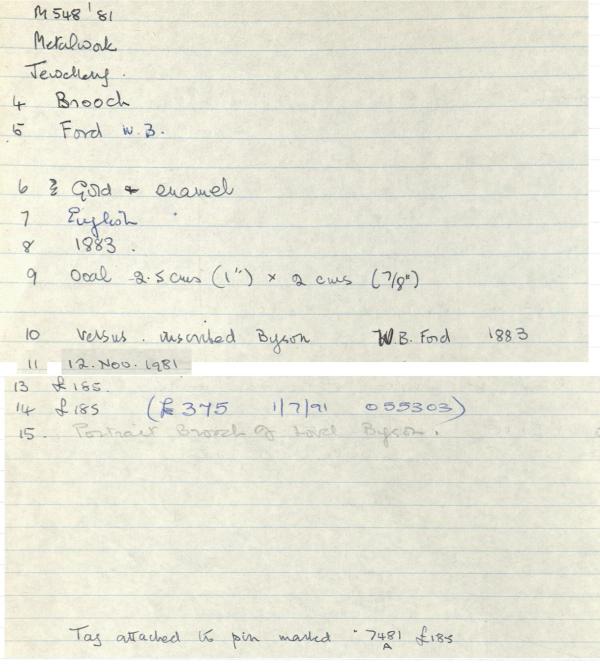 M 548 '81
Metalwork
Jewellery.
4 Brooch
5 Ford W.B.
6 Gold + enamel
7 English
8 1883.
9 Oval 2.5 cms (1") × 2 cms (7/8")
10 Versus. inscribed Byron W.B. Ford 1883
11 12. Nov. 1981
13 £185.
14 £185 (£375 1/7/91 055303)
15. Portrait Brooch of Lord Byron.
Tag attached to pin marked 7481 £185
A